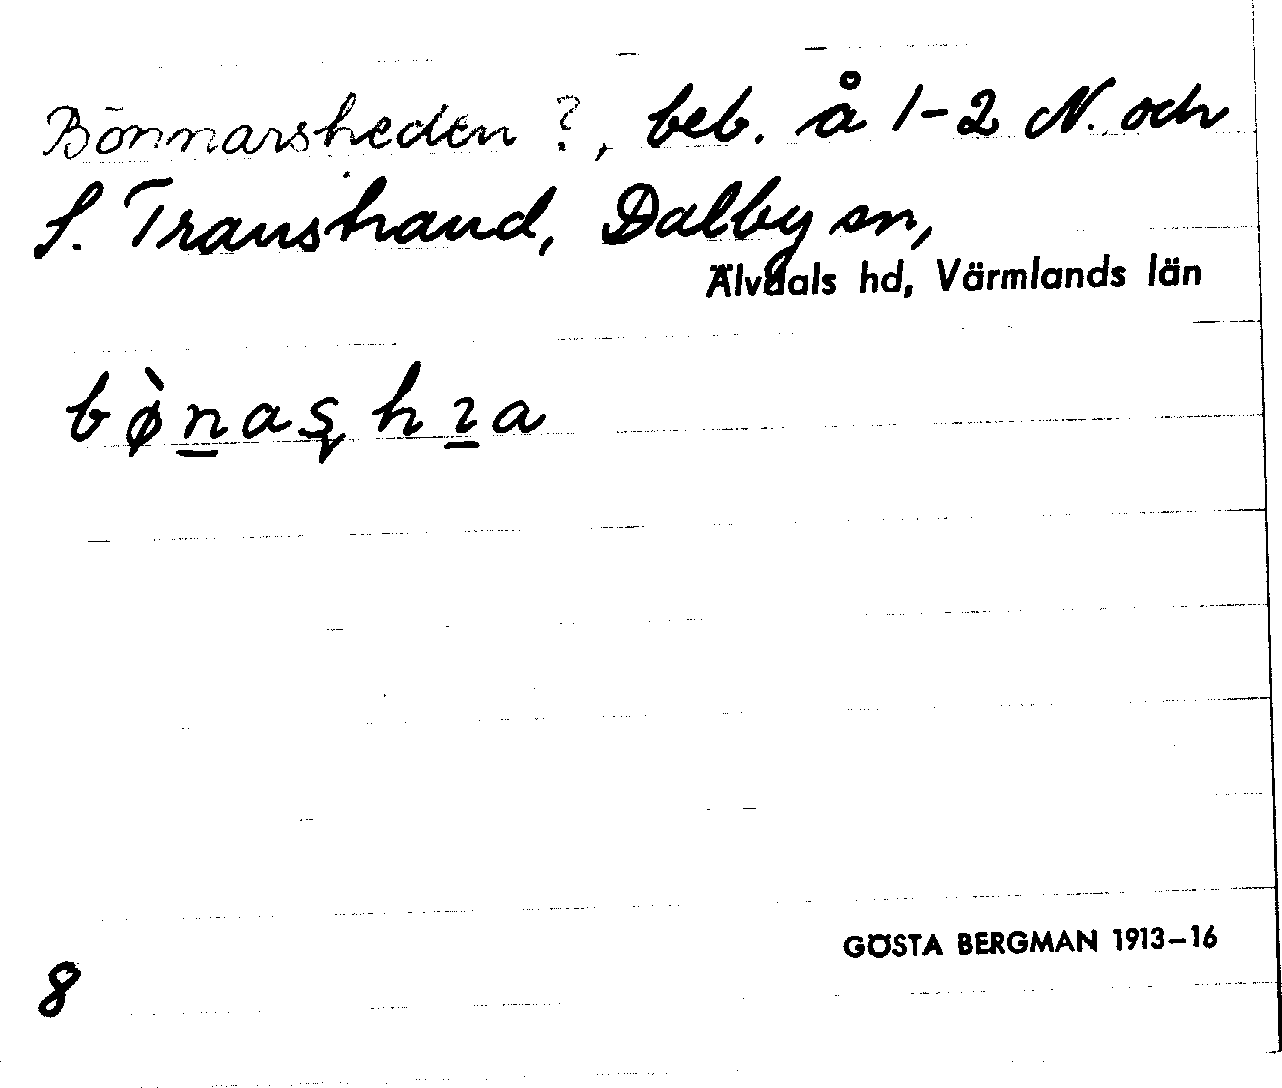 Bönnarsheden ?, beb. å 1-2 N. och
S. Transtrand, Dalby sn,
Älvdals hd, Värmlands län
GÖSTA BERGMAN 1913-16
8